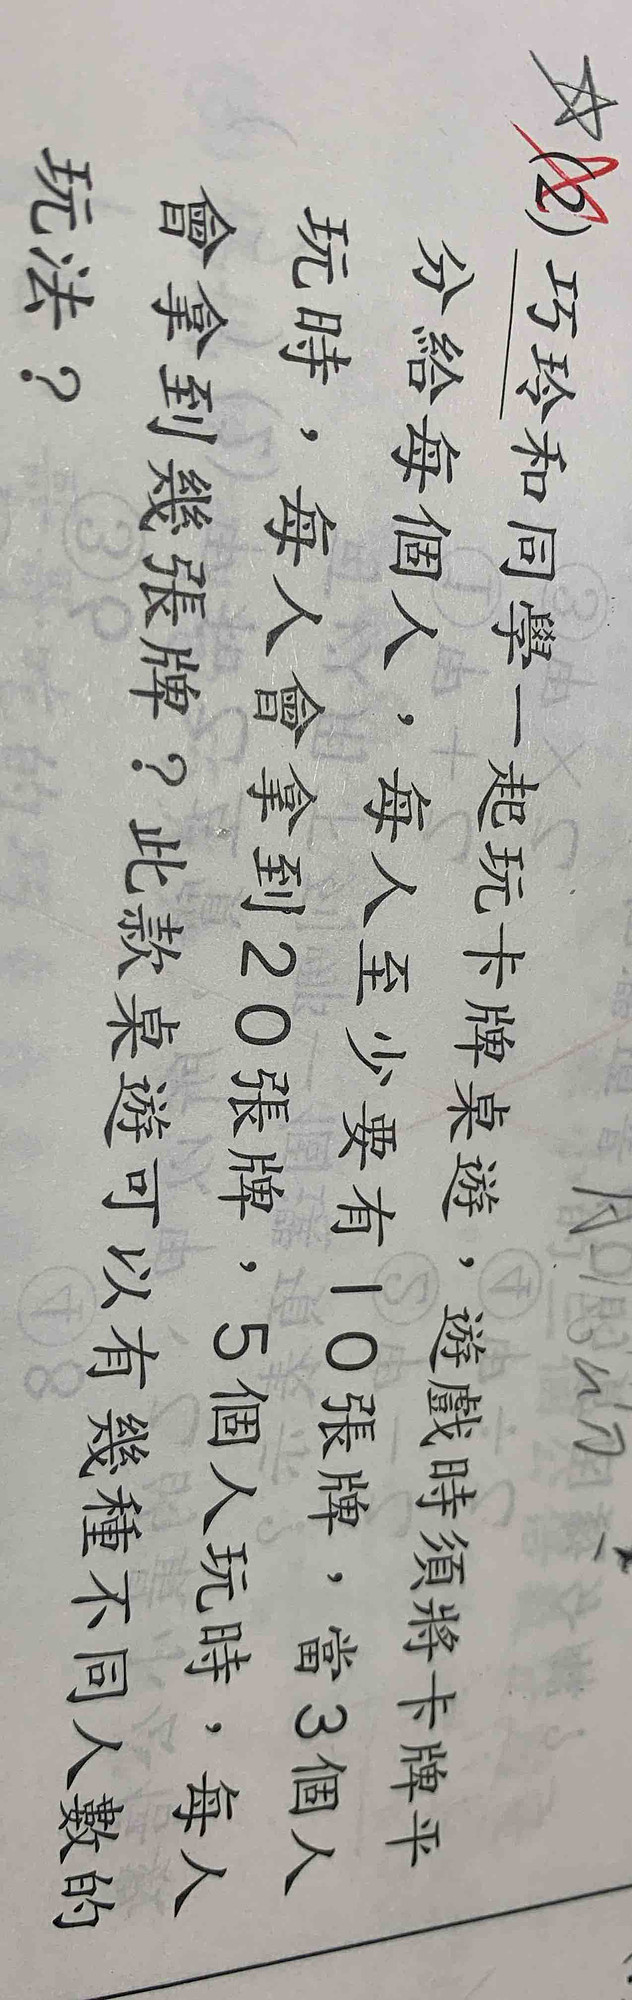 (2) 巧玲和同學一起玩卡牌桌遊，遊戲時須將卡牌平
分給每個人，每人至少要有10張牌，當3個人
玩時，每人會拿到20張牌，5個人玩時，每人
會拿到幾張牌？此款桌遊可以有幾種不同人數的
玩法？